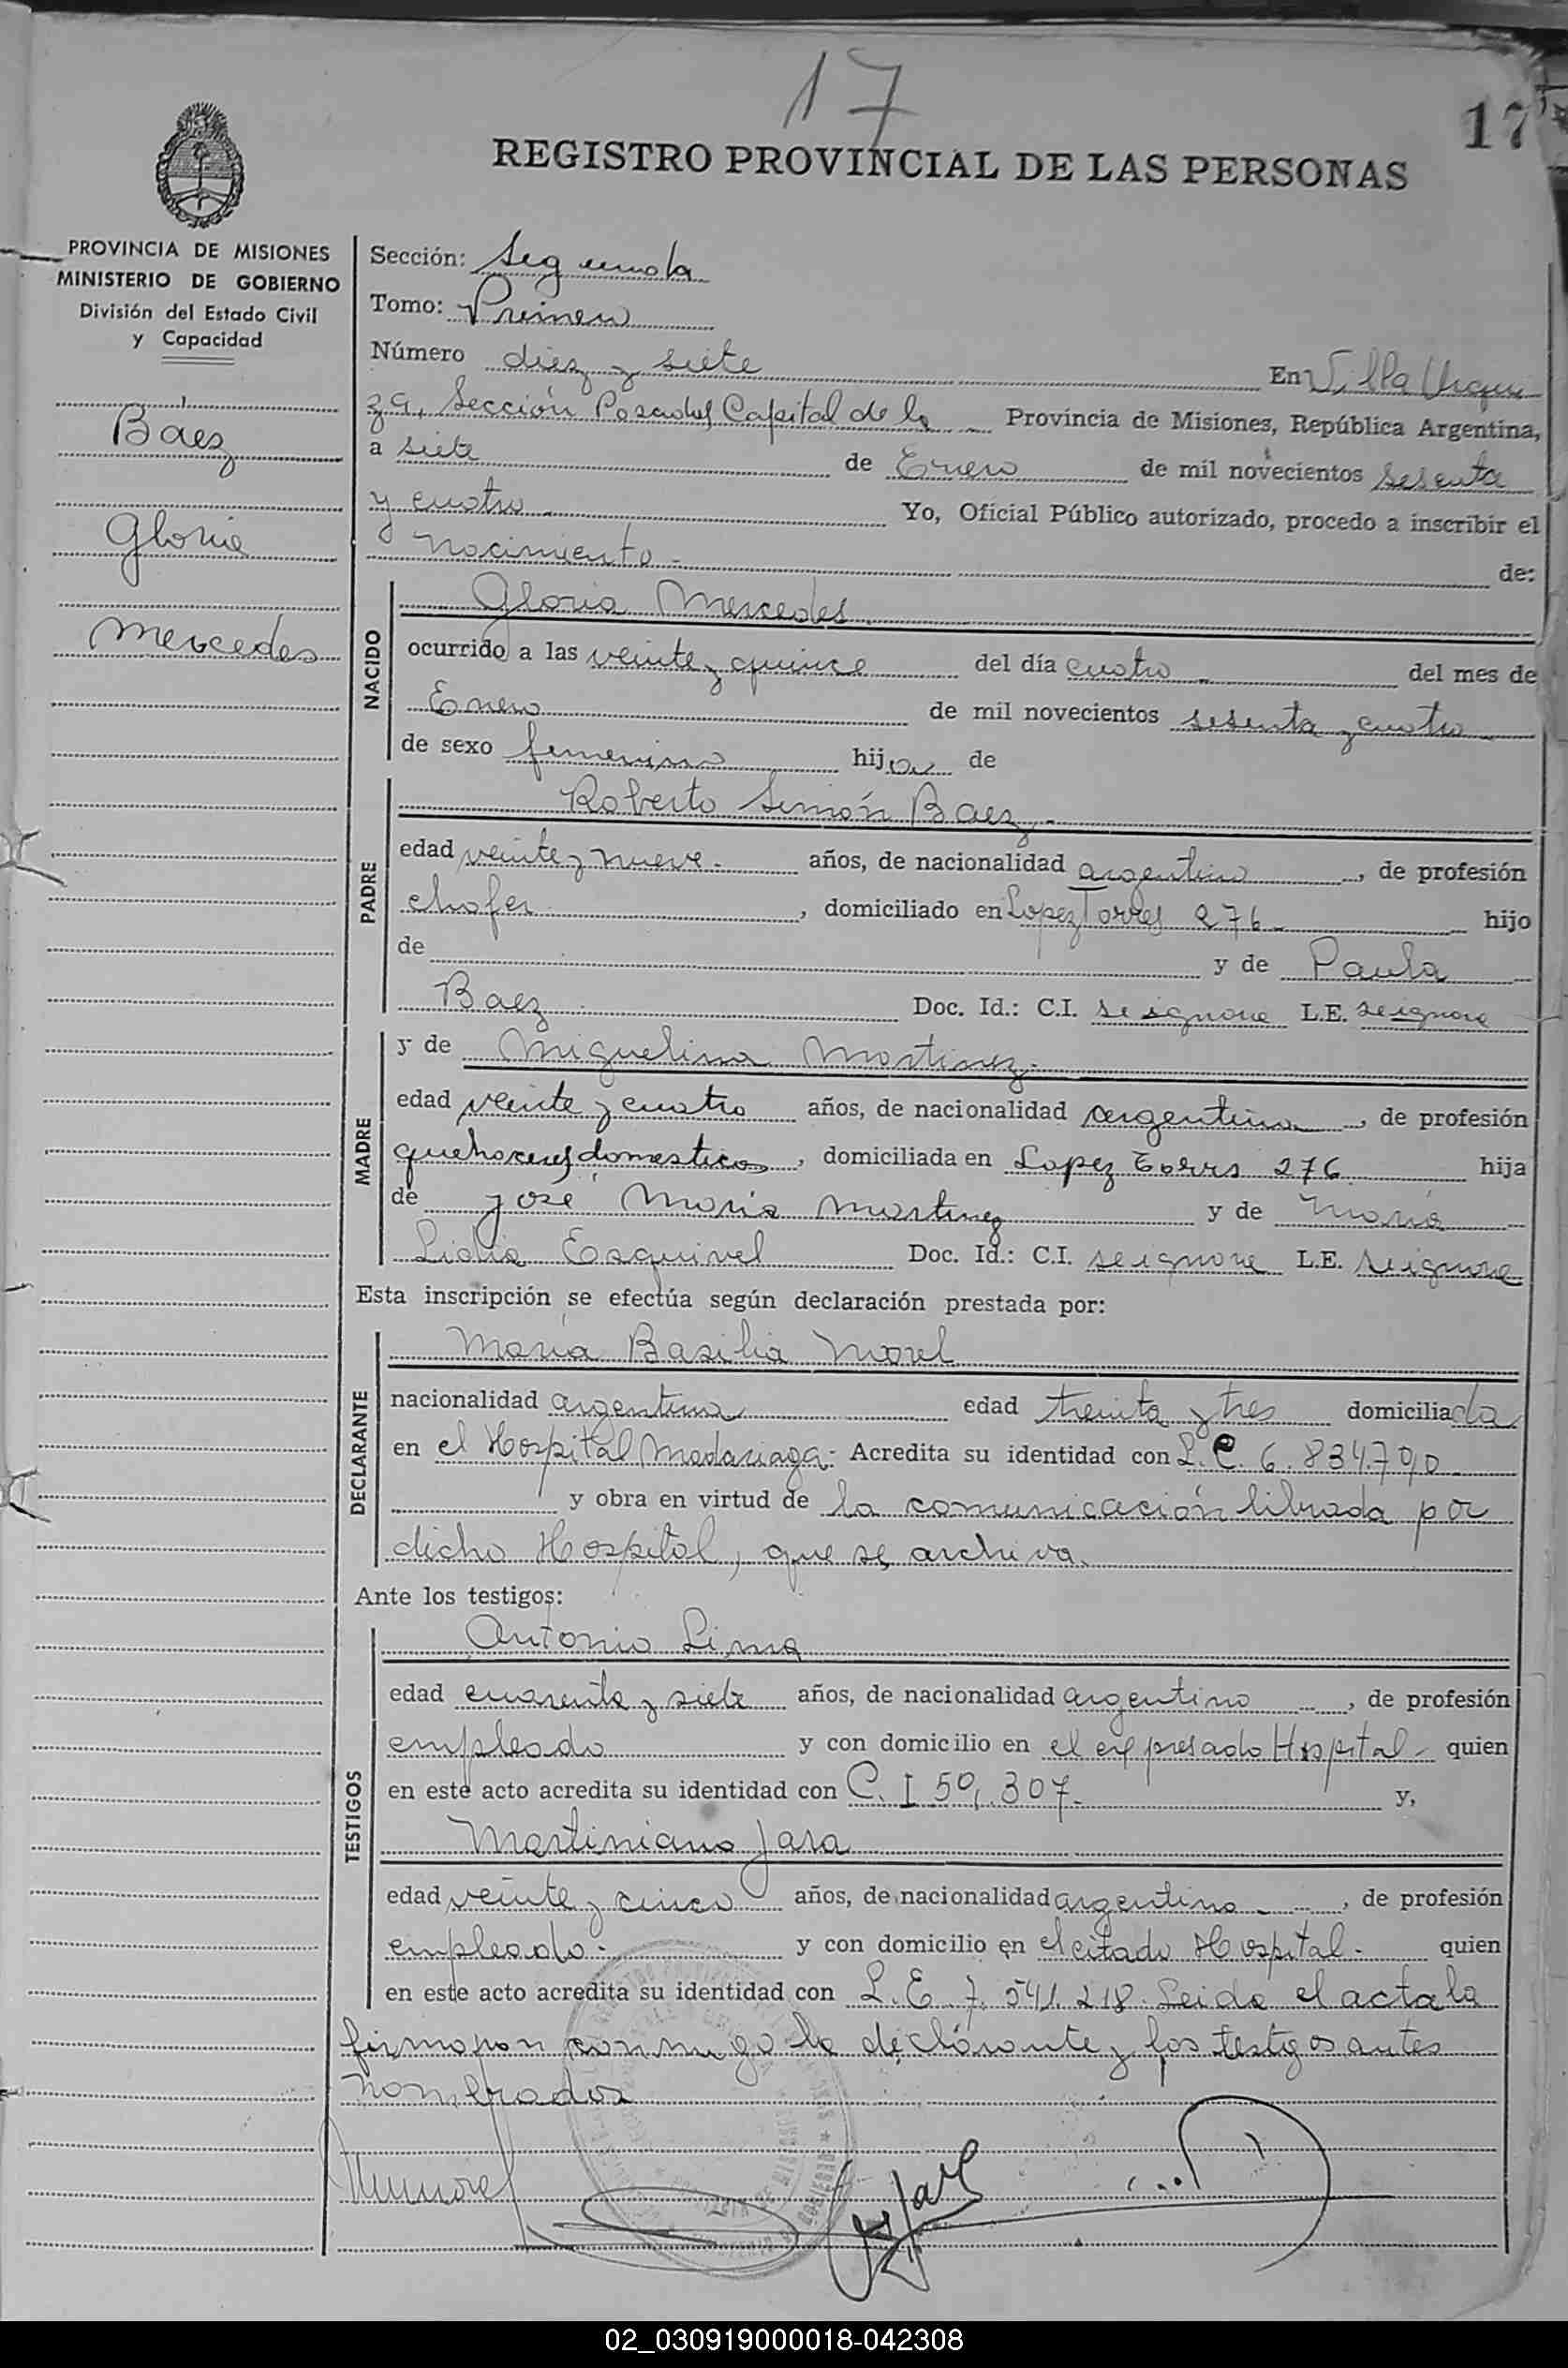 17
17
REGISTRO PROVINCIAL DE LAS PERSONAS
PROVINCIA DE MISIONES
MINISTERIO DE GOBIERNO
División del Estado Civil
y Capacidad
Báez
Gloria
Mercedes
Sección: Segunda
Tomo: Primero
Número diez y siete En Villa Urqui
za, Sección Posadas Capital de la Provincia de Misiones, República Argentina,
a siete de Enero de mil novecientos sesenta
y cuatro.- Yo, Oficial Público autorizado, procedo a inscribir el
nacimiento.- de:
NACIDO
Gloria Mercedes.
ocurrido a las veinte y quince del día cuatro del mes de
Enero de mil novecientos sesenta y cuatro
de sexo femenino hija de
PADRE
Roberto Simón Baez.-
edad veinte y nueve.- años, de nacionalidad argentino, de profesión
chofer, domiciliado en Lopez Torres 276.- hijo
de y de Paula
Baez Doc. Id.: C.I. se ignora L.E. se ignora
MADRE
y de Miguelina Martinez.-
edad veinte y cuatro años, de nacionalidad argentina, de profesión
quehaceres domesticos, domiciliada en Lopez Torres 276 hija
de José Maria Martinez y de Maria
Lidia Esquivel Doc. Id.: C.I. se ignora L.E. se ignora
Esta inscripción se efectúa según declaración prestada por:
DECLARANTE
Maria Basilia Morel
nacionalidad argentina edad treinta y tres domiciliada
en el Hospital Madariaga.- Acredita su identidad con L.C. 6.834.790
y obra en virtud de la comunicación librada por
dicho Hospital, que se archiva.
Ante los testigos:
TESTIGOS
Antonio Lima
edad cuarenta y siete años, de nacionalidad argentino, de profesión
empleado y con domicilio en el expresado Hospital.- quien
en este acto acredita su identidad con C. I 50.307.- y,
Martiniano Jara
edad veinte y cinco años, de nacionalidad argentino, de profesión
empleado.- y con domicilio en el citado Hospital.- quien
en este acto acredita su identidad con L.E. 7.541.218. Leida el acta la
firmaron conmigo la declarante y los testigos antes
nombrados
02_030919000018-042308